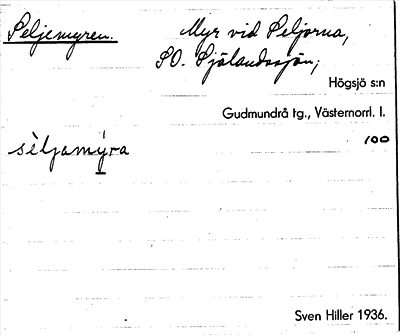 Seljemyren. Myr vid Seljorna,
SO. Själandssjön;
Högsjö s:n
Gudmundrå tg., Västernorrl. l.
sèljamýra 100
Sven Hiller 1936.